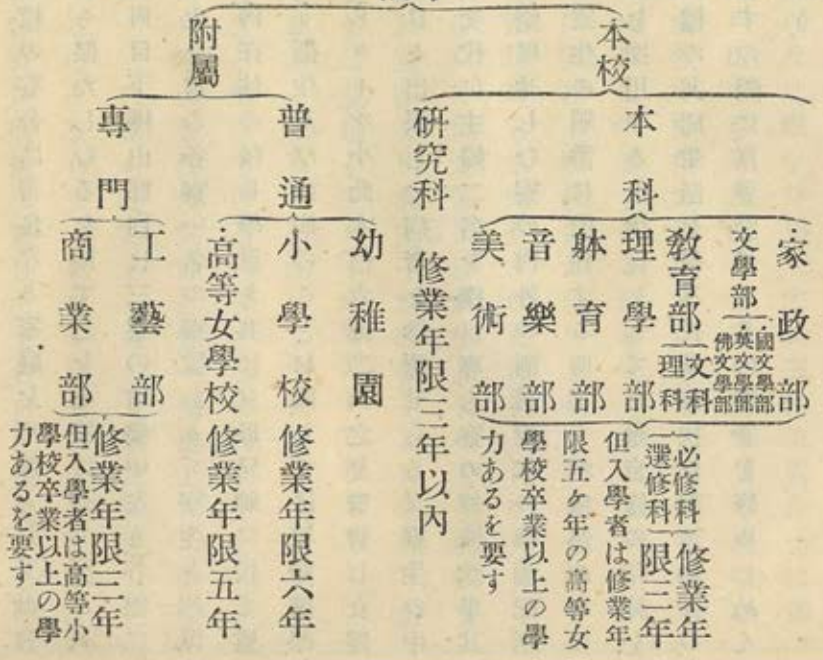 本校
本科
家政部
文學部
國文學部
英文學部
佛文學部
敎育部
文科
理科
理學部
躰育部
音樂部
美術部
必修科
選修科
修業年
限三年
但入學者は修業年
限五ケ年の高等女
學校卒業以上の學
力あるを要す
研究科 修業年限三年以內
附屬
普通
幼稚園
小學校 修業年限六年
高等女學校 修業年限五年
專門
工藝部
商業部
修業年限三年
但入學者は高等小
學校卒業以上の學
力あるを要す